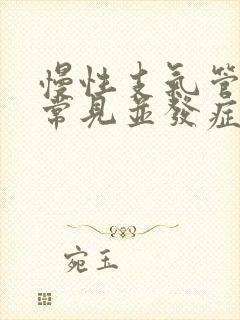 慢性支氣管
常見並發症
宛玉